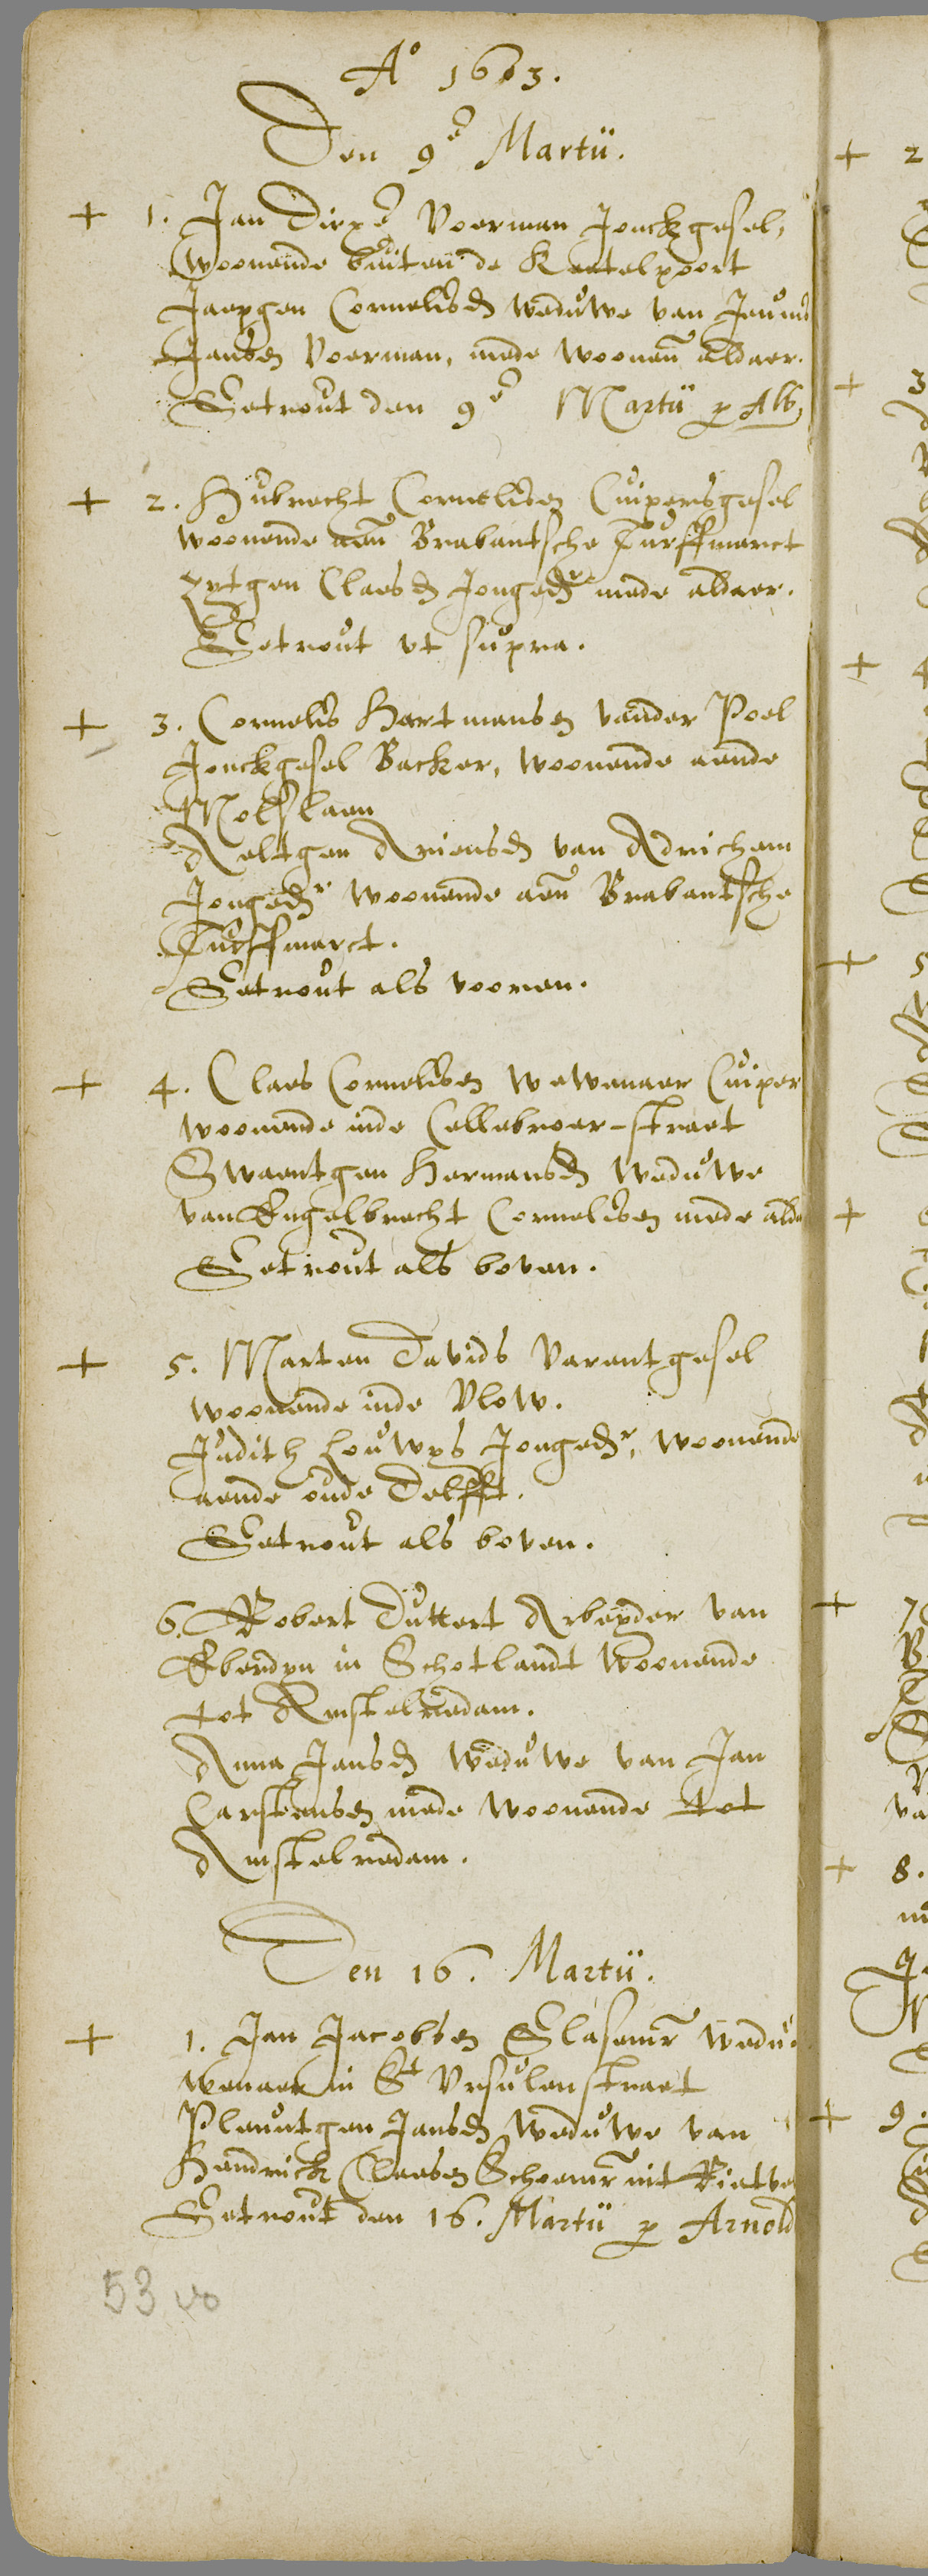 Ao 1603.
Den 9e Martij.
+ 1. Jan Dirxe Voerman Jonckgesel,
woonende buijten de Keetelpoort
Jaepgen Cornelisdr weduwe van
Jansen Voerman, mede woonen aldaer.
Getrout den 9e Martij p Alb,
+ 2. Hubrecht Cornelissen Cuijpersgesel
woonende aen Brabantsche Turffmarct
Claesdr Jongedr mede aldaer.
Getrout ut supra.
+ 3. Cornelis Hartmansen vander Poel
Jonckgesel Backer, woonende aende
Molslaen
Aeltgen Ariensdr van Adrichem
Jongedr woonende aen Brabantsche
Turffmarct.
Getrout als vooren.
+ 4. Claes Cornelissen Wewenaer Cuijper
woonende inde Cellebroer-straet
Swaentgen Hermansdr Weduwe
van Engelbrecht Cornelissen mede alda
Getrout als boven.
+ 5. Marten Davids Varentgesel
woonende inde Vlow.
Judith Louwys Jongedr, woonende
aende oude Delfft.
Getrout als boven.
6. Robert Duttert Arbeyder van
Eberdyn in Schotlandt Woonende
tot Amstelredam.
Anna Jansdr Weduwe van Jan
Carstensen mede woonende tot
Amstelredam.
Den 16. Martij.
+ 1. Jan Jacobsen Glasemr Wedu
wenaer in St Ursulenstraet
Pleuntgen Jansdr Weduwe van
Hendrick Claesen Schoemr uit Rietve
Getrout den 16. Martij p Arnold
53 vo
+ 2
+ 3
+ 4
+ 5
+
+ 7
+ 8.
+ 9.